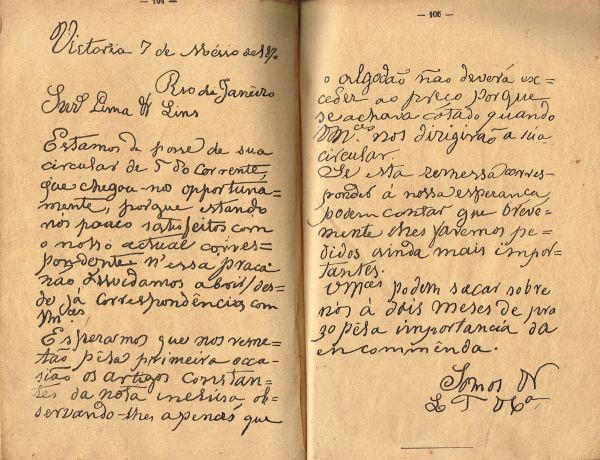 — 104 —
Victoria 7 de Maio de 1890.
Rio de Janeiro
Snrs Lima & Lins
Estamos de posse de sua
circular de 5 do corrente,
que chegou-no opportuna=
mente, porque estando
nós pouco satisfeitos com
o nosso actual corres=
pondente n'essa praça
não duvidamos abrir, des=
de já correspondencia com
Vm.ces
Esperamos que nos reme=
tão pela primeira occa=
sião os artigos constan=
tes da nota inclusa ob=
servando-lhes apenas que
— 105 —
o algodão não deverá ex=
ceder ao preço porque
se achava cotado quando
Vm.ces nos dirigirão a sua
circular
Se esta remessa corres=
ponder á nossa esperança
podem contar que breve=
mente lhes faremos pe=
didos ainda mais impor=
tantes.
Vmces podem sacar sobre
nós á dois meses de pra
zo pela importancia da
encommenda.
Somos &
L T & Ca